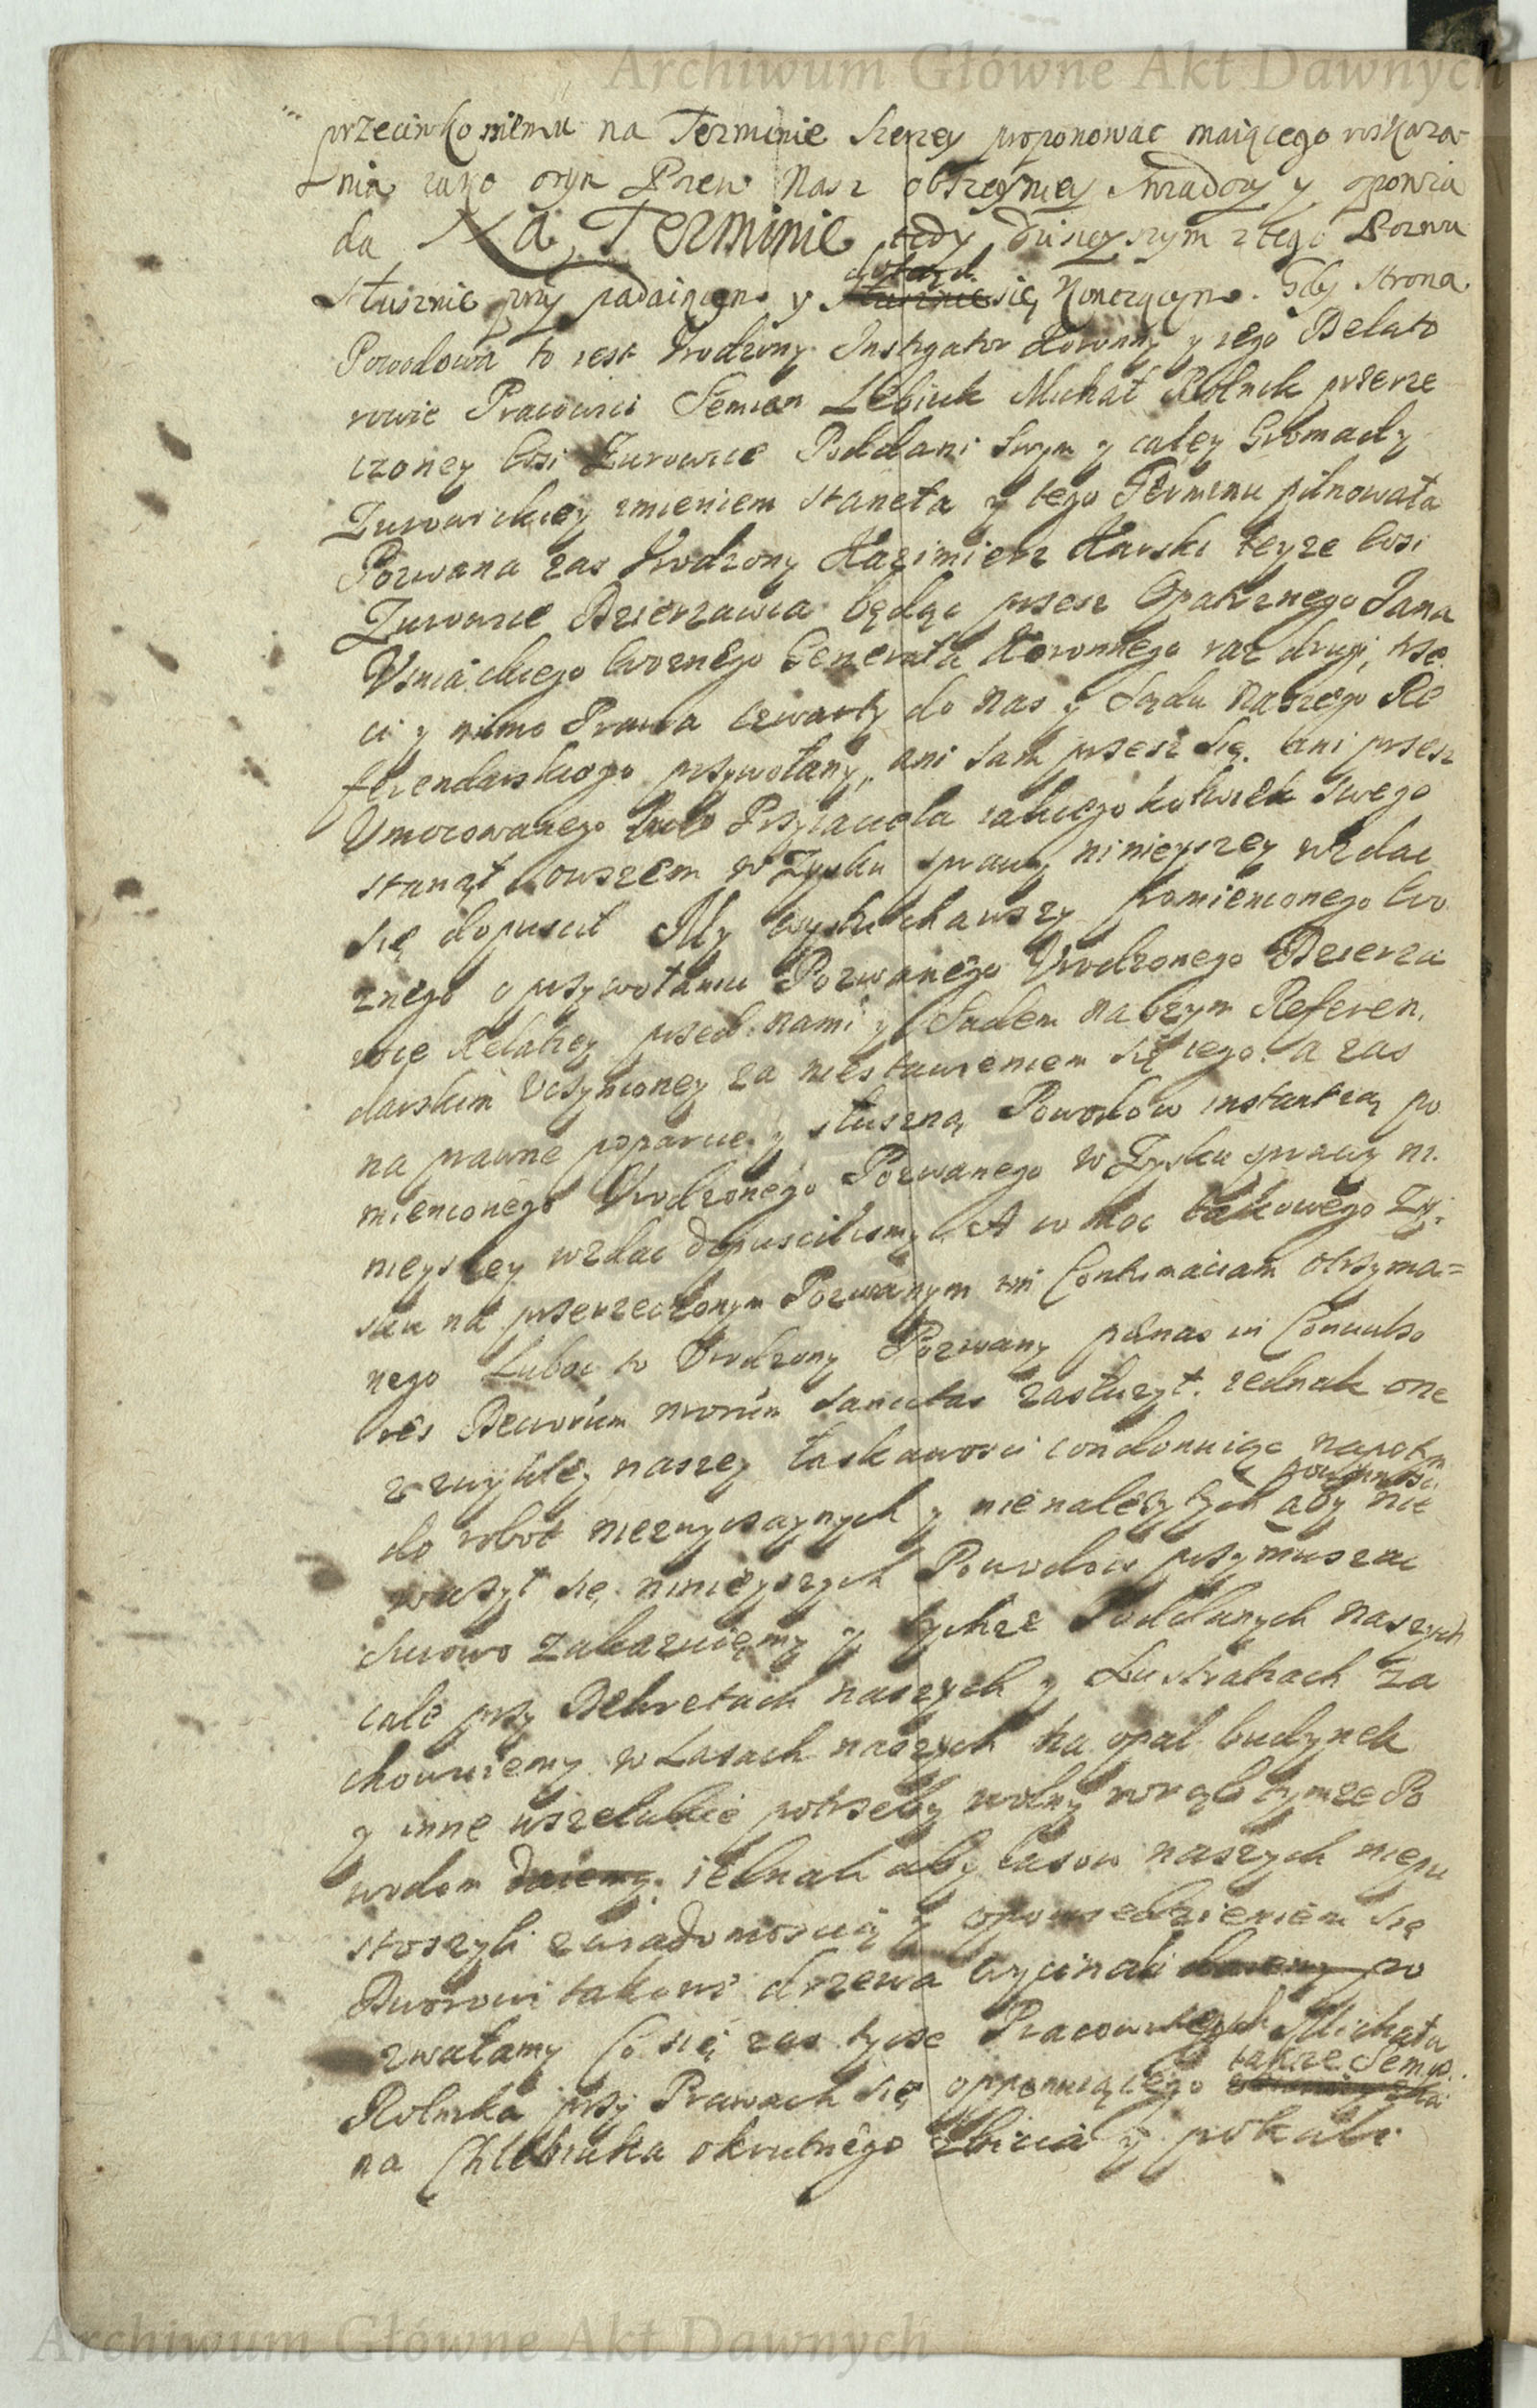 Archiwum Główne Akt Dawnych
przeciwko niemu na Terminie szerzey proponowac maiącego roskaza
nia iako oryn Pozew Nasz obszerniey swiadczy y opowia
da Na Terminie tedy dzisieyszym z tego Pozwu
słusznie przy padaiącym y dotąd się kończącym. Gdy strona
Powodowa to iest Urodzony Instigator Koronny y iego Delato
rowie Pracowici Semian Lebiuk Michał Rolnik przerze
czoney Wsi Zurowice Poddani Swym y całey Gromady
Zurowickiey imieniem staneła y tego Terminu pilnowała
Pozwana zas Urodzony Kazimierz Karski teyze Wsi
Zurowice Dzierzawca będąc przez Opatrznego Jana
Woznego Generała Koronnego raz drugi, trze
ci y mimo Prawa czwarty do nas y Sądu Naszego Re
ferendarskiego przywołany, ani sam przez się. ani przez
Umocowanego lub Przyiaciela iakiegokolwiek swego
stanął owszem w Zysku sprawy ninieyszey wzdac
się dopuscił My wysłuchawszy pomienionego Wo
znego o przywołaniu Pozwanego Urodzonego Dzierza
wce Relatiey przed nami y Sądem naszym Referen.
darskim Uczynioney za niestawieniem się iego. a zas
na prawne poparcie y słuszną Powodow instantią po
mienionego Urodzonego Pozwanego w Zysku sprawy ni.
nieyszey wzdac dopuscilismy. A w moc takowego Zy
sku na przerzeczonym Pozwanym in Contumaciam otrzyma=
nego Lubo to Urodzony Pozwany pænas in Convulso
res Decretorum nrorum sancitas zasłuzył. iednak one
z zwykłey naszey łaskawosci condonuiąc napotym
do robot niezwyczaynych y nienalezytych powinnosci aby nie
wazył się ninieyszych Powodow przymuszac
surowo zakazuięmy y tychze Poddanych naszych
cale przy Dekretach naszych y Lustratiach za
chowuiemy. w Lasach naszych na opał budynek
y inne wszelakie potrzeby wolny wrąb tymze Po
wodom daiemy. iednak aby lasow naszych niepu
stoszyli z wiadomoscią y opowiedzieniem się
Dworowi takowe drzewa wycinali po
zwalamy Co się zas tycze Pracowitych Michała
Rolnika przy Prawach się opponuiącego także Semio
na Chlebiuka okrutnego zbicia y pokale
Archiwum Główne Akt Dawnych